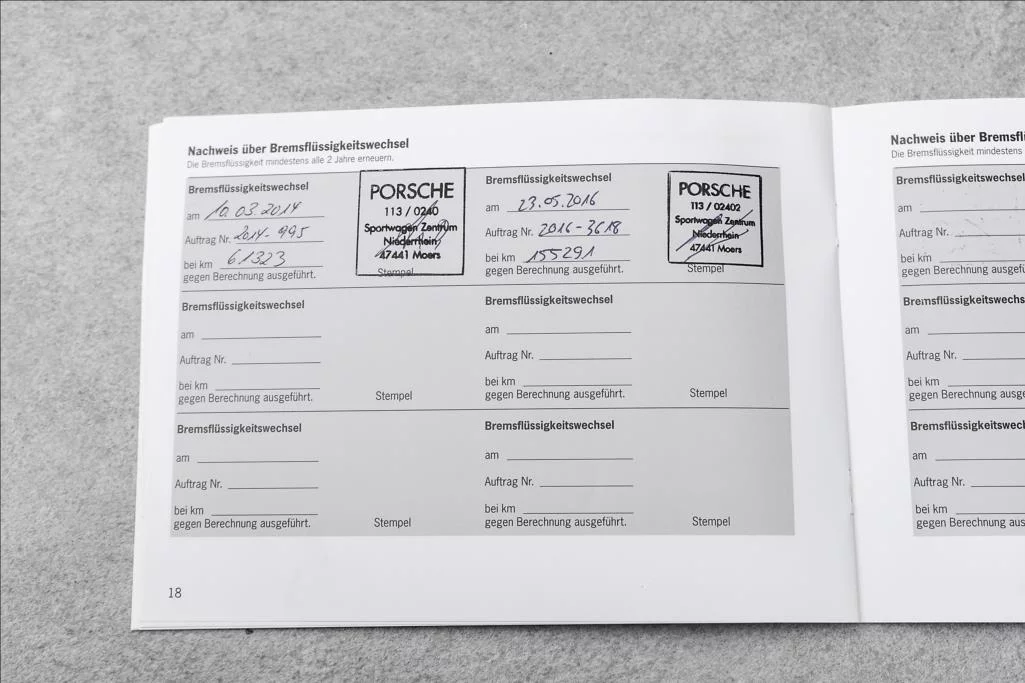 Nachweis über Bremsflüssigkeitswechsel
Die Bremsflüssigkeit mindestens alle 2 Jahre erneuern.
Bremsflüssigkeitswechsel
am 10.03.2014
Auftrag Nr. 2014-995
bei km 61323
gegen Berechnung ausgeführt.
PORSCHE
113 / 0240
Sportwagen Zentrum
Niederrhein
47441 Moers
Stempel
Bremsflüssigkeitswechsel
am 23.05.2016
Auftrag Nr. 2016-3618
bei km 155291
gegen Berechnung ausgeführt.
PORSCHE
113 / 02402
Sportwagen Zentrum
Niederrhein
47441 Moers
Stempel
Bremsflüssigkeitswechsel
am
Auftrag Nr.
bei km
gegen Berechnung ausgeführt.
Stempel
Bremsflüssigkeitswechsel
am
Auftrag Nr.
bei km
gegen Berechnung ausgeführt.
Stempel
Bremsflüssigkeitswechsel
am
Auftrag Nr.
bei km
gegen Berechnung ausgeführt.
Stempel
Bremsflüssigkeitswechsel
am
Auftrag Nr.
bei km
gegen Berechnung ausgeführt.
Stempel
18
Nachweis über Bremsfl
Die Bremsflüssigkeit mindestens
Bremsflüssigkeitswe
am
Auftrag Nr.
bei km
gegen Berechnung ausgefü
Bremsflüssigkeitswechs
am
Auftrag Nr.
bei km
gegen Berechnung ausge
Bremsflüssigkeitswecl
am
Auftrag Nr.
bei km
gegen Berechnung aus